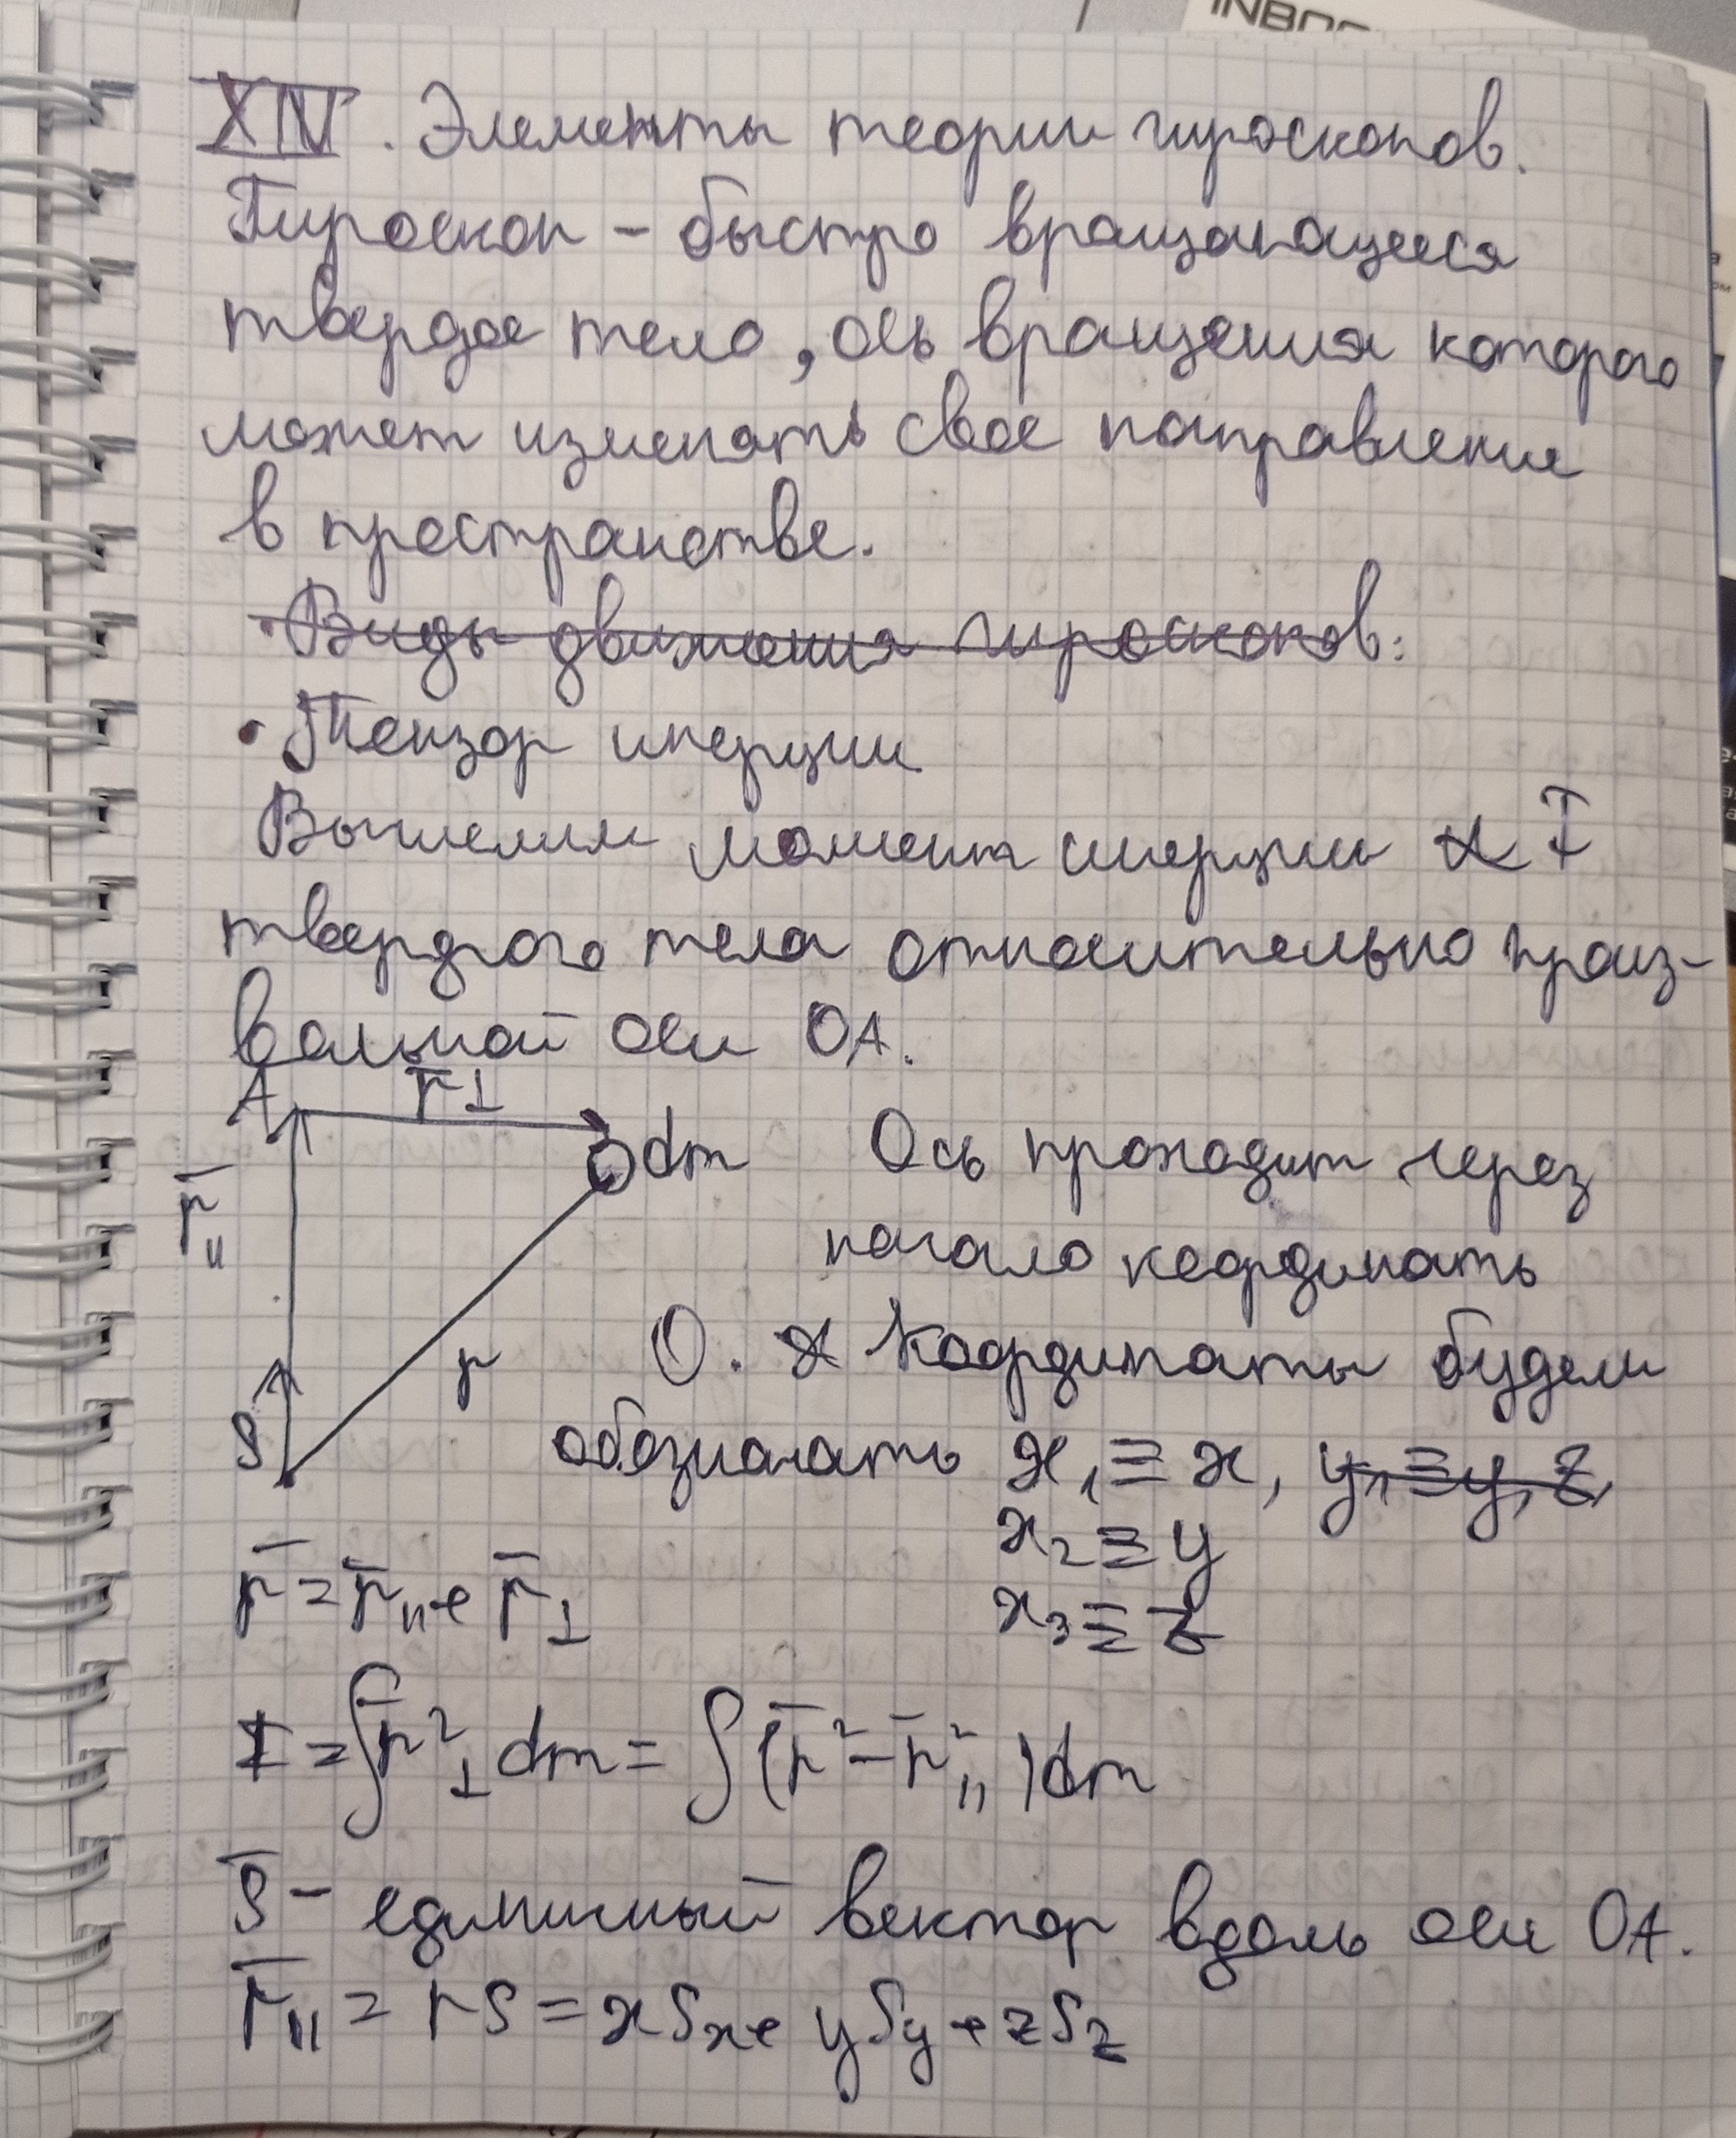 INBOO
XIV. Элементы теории гироскопов.
Гироскоп - быстро вращающееся
твердое тело, ось вращения которого
может изменять свое направление
в пространстве.
· Виды движения гироскопов:
· Тензор инерции
Вычислим момент инерции I
твердого тела относительно произ-
вольной оси OA.
A r̅⊥
dm Ось проходит через
r̅ıı
начало координать
r O. Координаты будем
S обозначать x₁ ≡ x, y₁ ≡ y, z
x₂ ≡ y
r̅ = r̅ıı + r̅⊥
x₃ ≡ z
I = ∫r̅²⊥ dm = ∫(r̅² - r̅²ıı)dm
S̅ - единичный вектор вдоль оси OA.
r̅ıı = rS = xSx + ySy + zSz